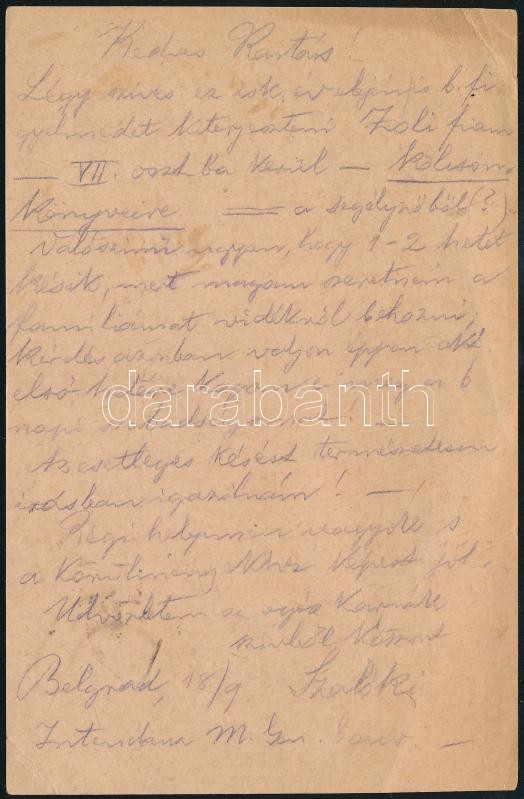 Kedves Kartárs!
Légy szíves ez isk. év elején is b. fi-
gyelmedet kiterjeszteni Zoli fiam
— VII. oszt.ba kerül — kölcsön-
könyveire — a segélyzőből (?).
Valószínű ugyan, hogy 1-2 hetet
késik, mert magam szeretném a
famíliámat vidékről behozni,
kérdés azonban vajon éppen az
első hétre kapom-e meg a 6
napi szabadságomat! —
Az esetleges késést természetesen
írásban igazolnám! —
Régi helyemen vagyok s
a körülményekhez képest jól.
Üdvözletem az egész karnak
szívből köszönt
Belgrad, 18/9 Szalóki
Intendanz M. Gen. Gouv. —
darabanth